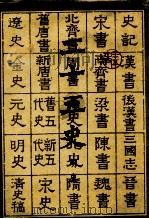 史記 漢書 後漢書 三國志 晉書
宋書 南齊書 梁書 陳書 魏書
二十五史
北齊 隋書
舊唐書 新唐書 舊五代史 新五代史 宋史
遼史 金史 元史 明史 清史稿